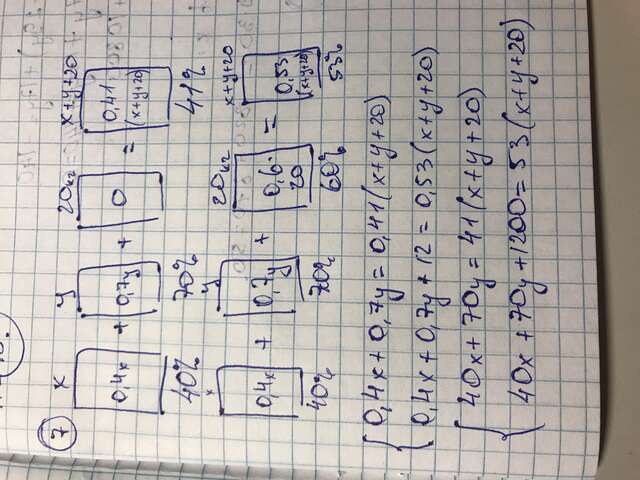 7
x y 20кг x+y+20
0,4x + 0,7y + 0 = 0,41
(x+y+20)
40% 70% 41%
x y 20кг x+y+20
0,4x + 0,7y + 0,6· = 0,53
20 (x+y+20)
40% 70% 60% 53%
0,4x + 0,7y = 0,41(x+y+20)
0,4x + 0,7y + 12 = 0,53(x+y+20)
40x + 70y = 41(x+y+20)
40x + 70y + 1200 = 53(x+y+20)